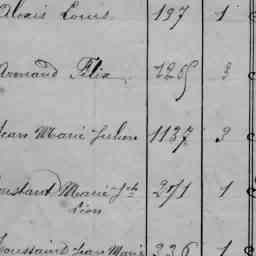 Alexis Louis 197 1
Armand Félix 1265 3
Jean Marie Julien 1137 3
Toustard Marie Jh 271 1
Léon
Toussaint Jean Marie 336 1